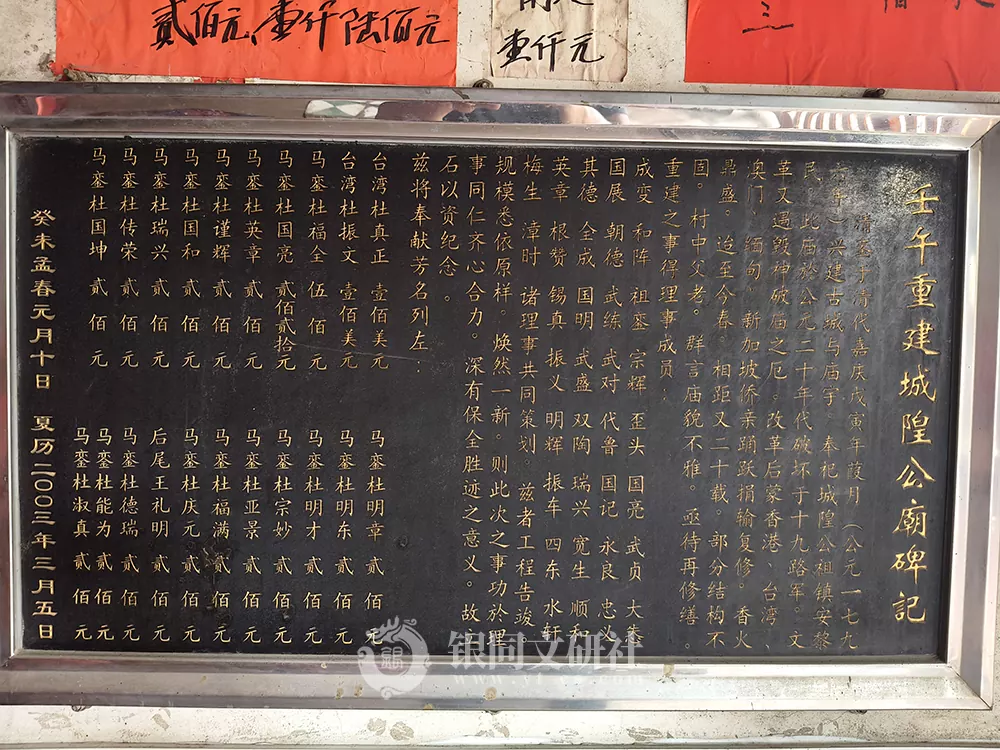 贰佰元、壹仟陆佰元
壹仟元
三
壬午重建城隍公廟碑記
清基于清代嘉庆戊寅年葭月（公元一七九
年）兴建古城与庙宇。奉祀城隍公祖镇安黎
民。此庙於公元二十年代破坏于十九路军。文
革又遇毁神破庙之厄。改革后蒙香港、台湾、
奥门、缅甸、新加坡侨亲踊跃捐输复修。香火
鼎盛。迨至今春。相距又二十载。部分结构不
固。村中父老。群言庙貌不雅。亟待再修缮。
重建之事得理事成员：
成变 和阵 祖銮 宗辉 歪头 国亮 武贞 大泰
国展 朝德 武练 武对 代鲁 国记 永良 忠义
其德 全成 国明 武盛 双陶 瑞兴 宽生 顺和
英章 根赞 锡真 振义 明辉 振车 四东 水轩
梅生 漳时 诸理事共同策划。兹者工程告竣
规模悉依原样。焕然一新。则此次之事功於理
事同仁齐心合力。深有保全胜迹之意义。故立
石以资纪念。
兹将奉献芳名列左：
台湾杜真正 壹佰美元 马銮杜明章 贰佰元
台湾杜振文 壹佰美元 马銮杜明东 贰佰元
马銮杜福全 伍佰元 马銮杜明才 贰佰元
马銮杜国亮 贰佰贰拾元 马銮杜宗妙 贰佰元
马銮杜英章 贰佰元 马銮杜亚景 贰佰元
马銮杜谨辉 贰佰元 马銮杜福满 贰佰元
马銮杜国和 贰佰元 马銮杜庆元 贰佰元
马銮杜瑞兴 贰佰元 后尾王礼明 贰佰元
马銮杜传荣 贰佰元 马銮杜德瑞 贰佰元
马銮杜国坤 贰佰元 马銮杜能为 贰佰元
马銮杜淑真 贰佰元
癸未孟春元月十日 夏历二00三年三月五日
银同文研社